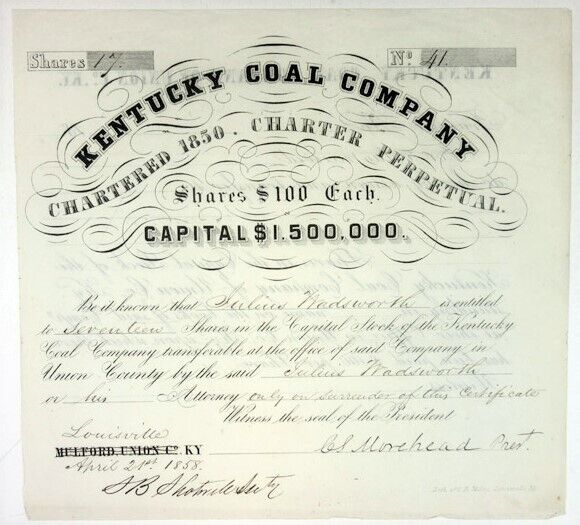 Shares 17. No. 41.
KENTUCKY COAL COMPANY
CHARTERED 1850. CHARTER PERPETUAL.
Shares $100 Each.
CAPITAL $1.500,000.
Be it known that Julius Wadsworth is entitled
to Seventeen Shares in the Capital Stock of the Kentucky
Coal Company transferable at the office of said Company in
Union County by the said Julius Wadsworth
or his Attorney only on surrender of this Certificate
Witness the seal of the President
Louisville
MULFORD UNION Co. KY
April 21st 1858.
C S Morehead Prest.